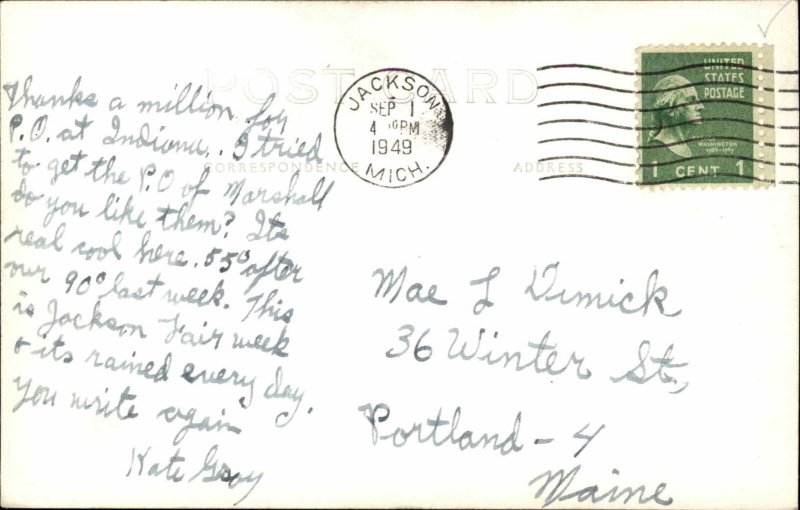 POST CARD
CORRESPONDENCE
ADDRESS
JACKSON
SEP 1
4 PM
1949
MICH.
UNITED
STATES
POSTAGE
WASHINGTON
1789-1797
1 CENT 1
Thanks a million for
P.O. at Indiana. I tried
to get the P.O of Marshall
do you like them? Its
real cool here. 55° after
our 90° last week. This
is Jackson Fair week
& its rained every day.
you write again
Kate Gray
Mae L Dimick
36 Winter St.,
Portland - 4
Maine